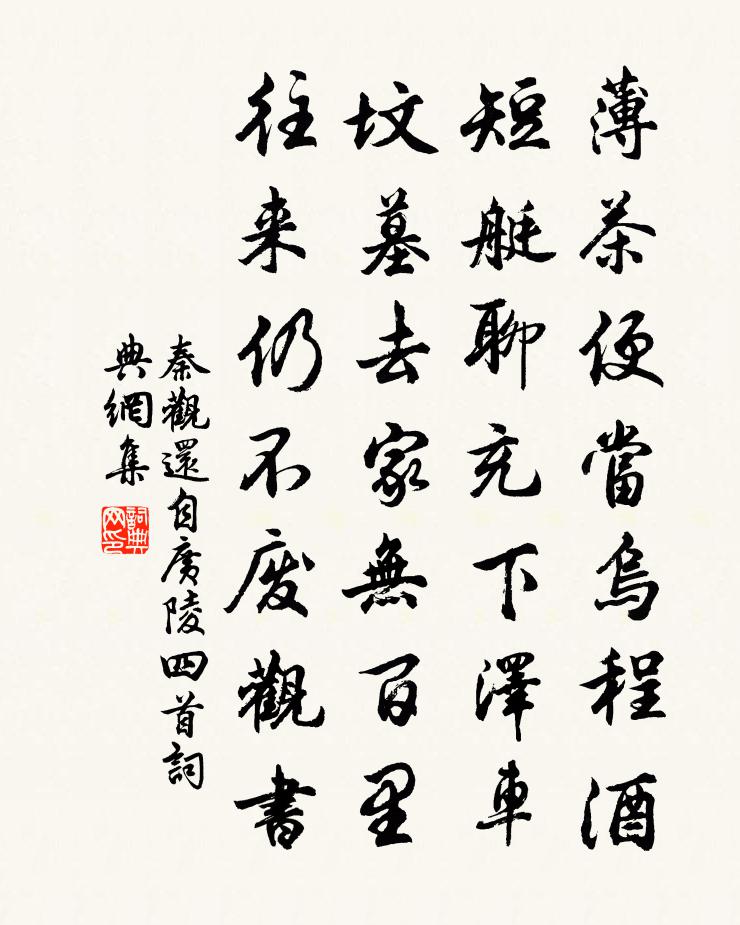 薄茶便當烏程酒
短艇聊充下澤車
墳墓去家無百里
往来仍不廢觀書
秦觀還自廣陵四首詞
典網集
詞典
网印